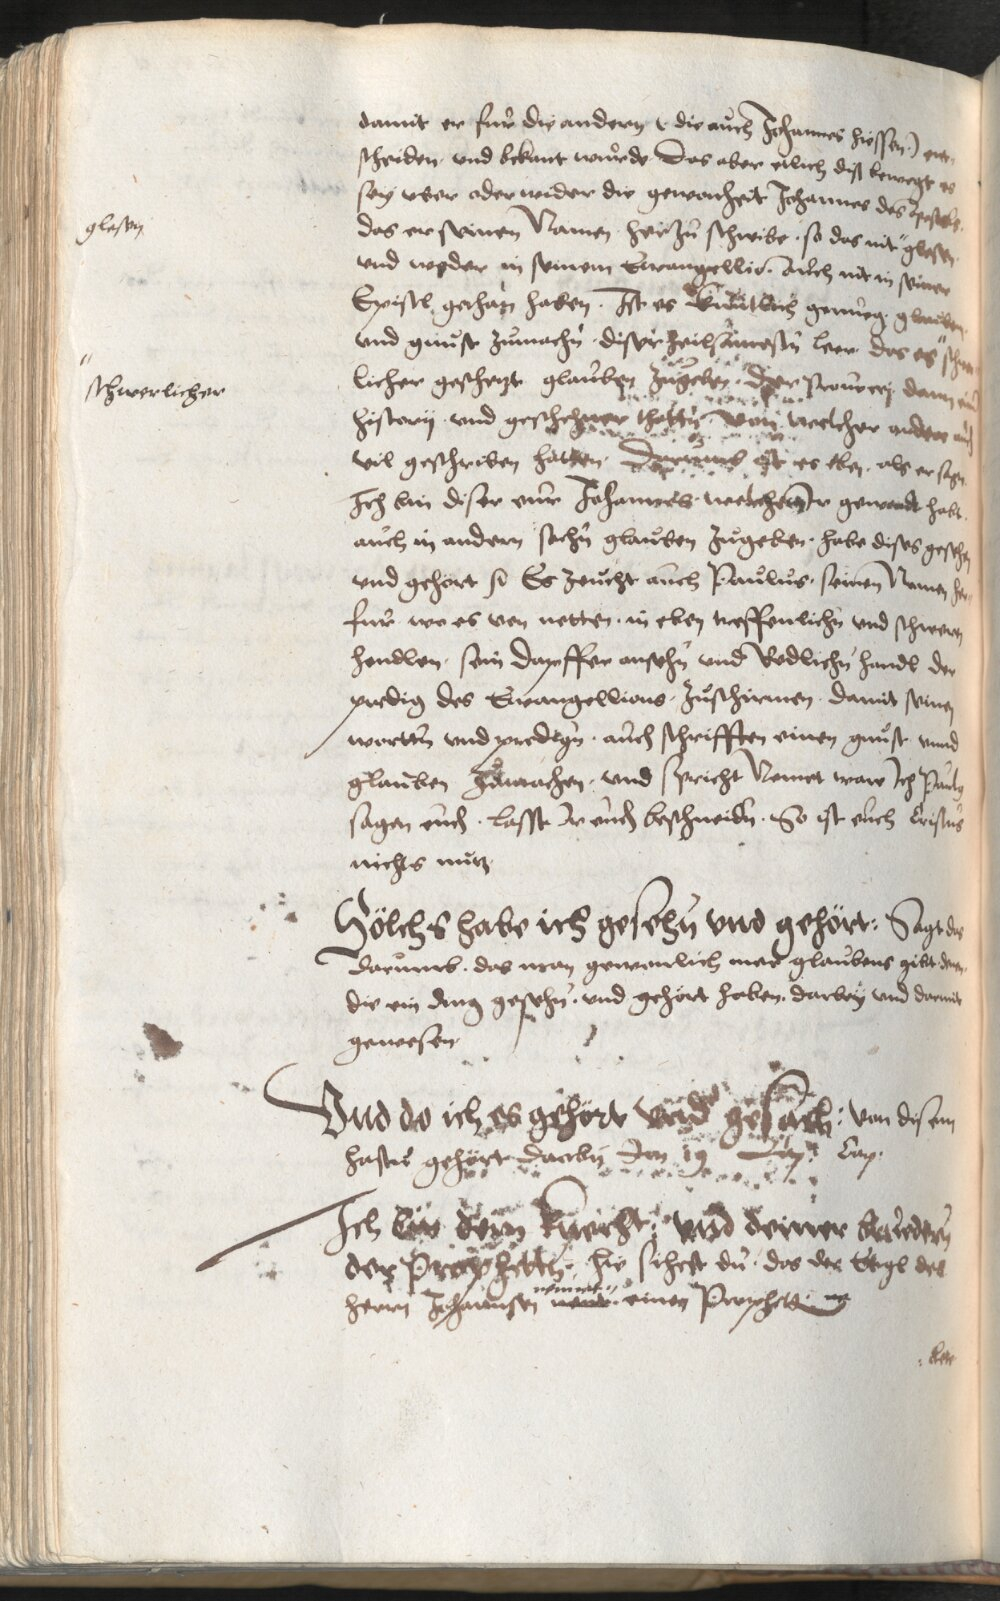 damit er fur die andern (die auch Johannes hiessen) ent
scheiden vnd bekant wurde Das aber etlich diß bewegt es
sey vber oder wider die gewonheit Johannes des Apostels
das er seinen Namen herzu schreibe. so das nit "glesen
glesen
vnd weder in seinem Ewangellio. Auch nit in seiner
Epistl gethan haben. Ist es genueg glauben
vnd gunst zumachn diser leer das es "schwer
"
schwerlicher
licher geschezt glauben zugeben. der dann ein
history vnd geschehner thattn. von welcher andere auch
vil geschriben hatten. Darumb ist es eben als er sagt.
Ich bin diser eur Johannes. welchem Ir gewondt habt.
auch in andern sachn glauben zugeben. habe dises gesehen
vnd gehort Es zeucht auch Paulus. seinen Namen her
fur wo es von netten. in eben treffenlichn vnd schweren
hendlen. sein dapffer ansehn vnd Redlichn handl der
predig des Ewangellions. zuschirmen. damit seinen
wortn vnd predign. auch schrifften einen gunst vnnd
glauben zumachen. vnd spricht Nemet war Ich Paulus
sagen euch. lasst Ir euch beschneidn. So ist euch Cristus
nichts nutz
Sölchs habe ich gesehn vnd gehört: Sagt das
darumb. das man gewonlich mer glaubens gibt denen.
die ein ding gesehn. vnd gehört haben. darbey vnd darmit
gewesen
Vnd do ich es gehört vnd gesach: von disem
hastu gehört den 19 Cap.
Ich bin dein knecht: vnd deiner bruedern
der Prophettn. hie sihest du. das der Engl des
herrn Johannsen nennet einen Prophett.